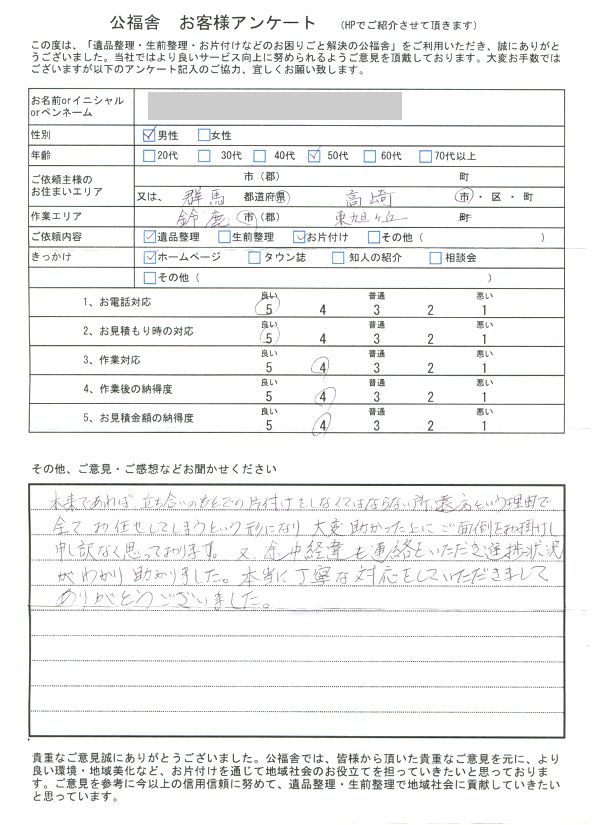 公福舎　お客様アンケート　（HPでご紹介させて頂きます）
この度は、「遺品整理・生前整理・お片付けなどのお困りごと解決の公福舎」をご利用いただき、誠にありがと
うございました。当社ではより良いサービス向上に努められるようご意見を頂戴しております。大変お手数では
ございますが以下のアンケート記入のご協力、宜しくお願い致します。
お名前orイニシャル
orペンネーム
性別　男性　女性
年齢　20代　30代　40代　50代　60代　70代以上
ご依頼主様の　市（郡）　町
お住まいエリア　又は、群馬　都道府県　高崎　市・区・町
作業エリア　鈴鹿　市（郡）　東旭ヶ丘　町
ご依頼内容　遺品整理　生前整理　お片付け　その他（　）
きっかけ　ホームページ　タウン誌　知人の紹介　相談会
その他（　）
良い　普通　悪い
1、お電話対応　5　4　3　2　1
良い　普通　悪い
2、お見積もり時の対応　5　4　3　2　1
良い　普通　悪い
3、作業対応　5　4　3　2　1
良い　普通　悪い
4、作業後の納得度　5　4　3　2　1
良い　普通　悪い
5、お見積金額の納得度　5　4　3　2　1
その他、ご意見・ご感想などお聞かせください
本来であれば、立ち合いのもとでの片付けをしなくてはならない所、遠方という理由で
全てお任せしてしまうという形になり大変助かった上にご面倒をお掛けし
申し訳なく思っております。又、途中経過も連絡をいただき進捗状況
がわかり助かりました。本当に丁寧な対応をしていただきまして
ありがとうございました。
貴重なご意見誠にありがとうございました。公福舎では、皆様から頂いた貴重なご意見を元に、より
良い環境・地域美化など、お片付けを通じて地域社会のお役立てを担っていきたいと思っておりま
す。ご意見を参考に今以上の信用信頼に努めて、遺品整理・生前整理で地域社会に貢献していきたい
と思っています。